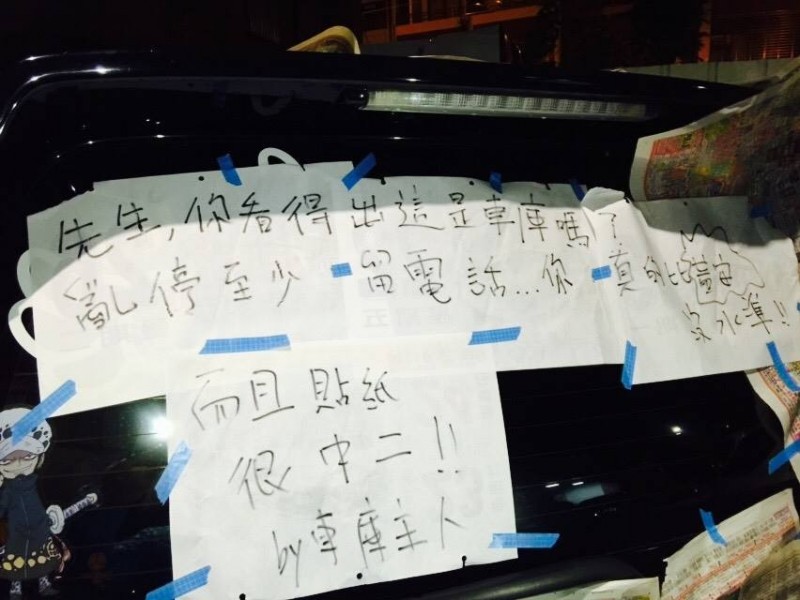 先生,你看得出這是車庫嗎?
亂停至少留電話...你真的
沒水準!!
而且貼紙
很中二!!
by車庫主人